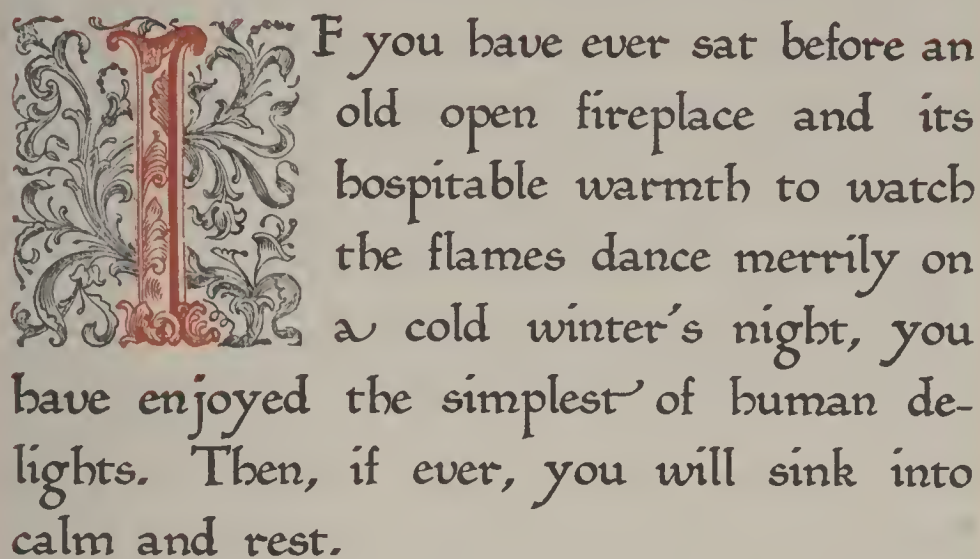 IF you have ever sat before an
old open fireplace and its
hospitable warmth to watch
the flames dance merrily on
a cold winter's night, you
have enjoyed the simplest of human de-
lights. Then, if ever, you will sink into
calm and rest.